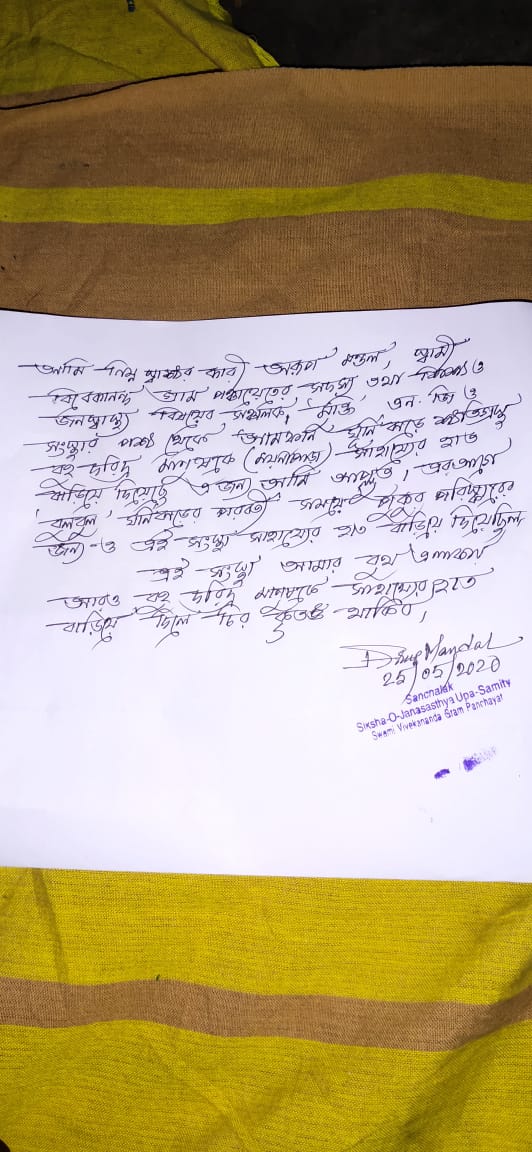 আমি নিম্ন স্বাক্ষর কারী অরূপ মন্ডল, স্বামী
বিবেকানন্দ গ্রাম পঞ্চায়েতের সদস্য তথা শিক্ষা ও
জনস্বাস্থ্য বিষয়ের সঞ্চালক, 'মুক্তি' এন. জি ও
সংস্থার পক্ষ থেকে আমফান ঘূর্নি ঝড়ে ক্ষতিগ্রস্থ
বহু দরিদ্র মানুষকে সাহায্যের হাত
বাড়িয়ে দিয়েছে এজন্য আমি আপ্লুত। এর আগে
'বুলবুল' ঘূর্নিঝড়ের পরবর্তী সময়ে পুকুর পরিষ্কারের
জন্য-ও এই সংস্থা সাহায্যের হাত বাড়িয়ে দিয়েছিল
এই সংস্থা আমার বুথ এলাকায়
আরও বহু দরিদ্র মানুষকে সাহায্যের হাত
বাড়িয়ে দিলে চির কৃতজ্ঞ থাকিব,
Mandal
25/05/2020
Sanchalak
Siksha-O-Janasasthya Upa-Samity
Swami Vivekananda Gram Panchayat